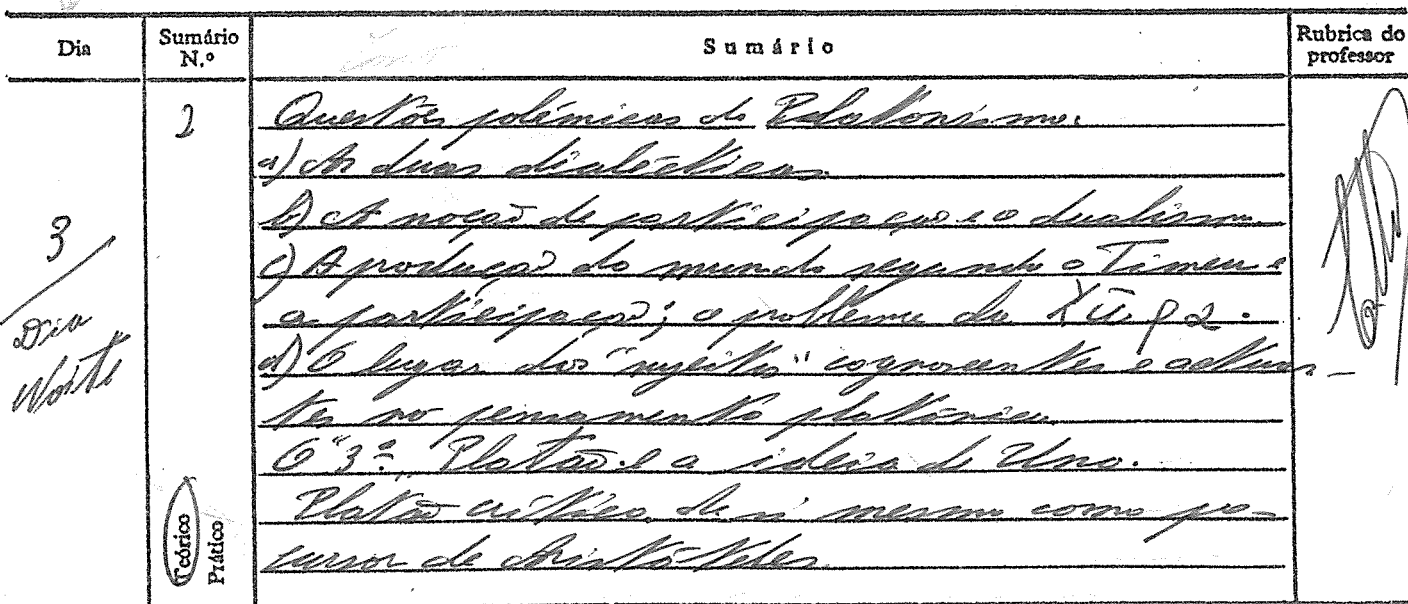 Dia
Sumário N.º
Sumário
Rubrica do professor
2
Questões polémicas do Platonismo:
a) As duas dialécticas
b) A noção de participação e o dualismo
3
Dia
Noite
c) A produção do mundo segundo o Timeu e
a participação; o problema da
d) O lugar dos "sujeitos" cognoscentes e actuan-
tes no pensamento platónico.
O "3º" Platão e a ideia de Uno.
Platão crítico de si mesmo como pre-
cursor de Aristóteles
Teórico
Prático